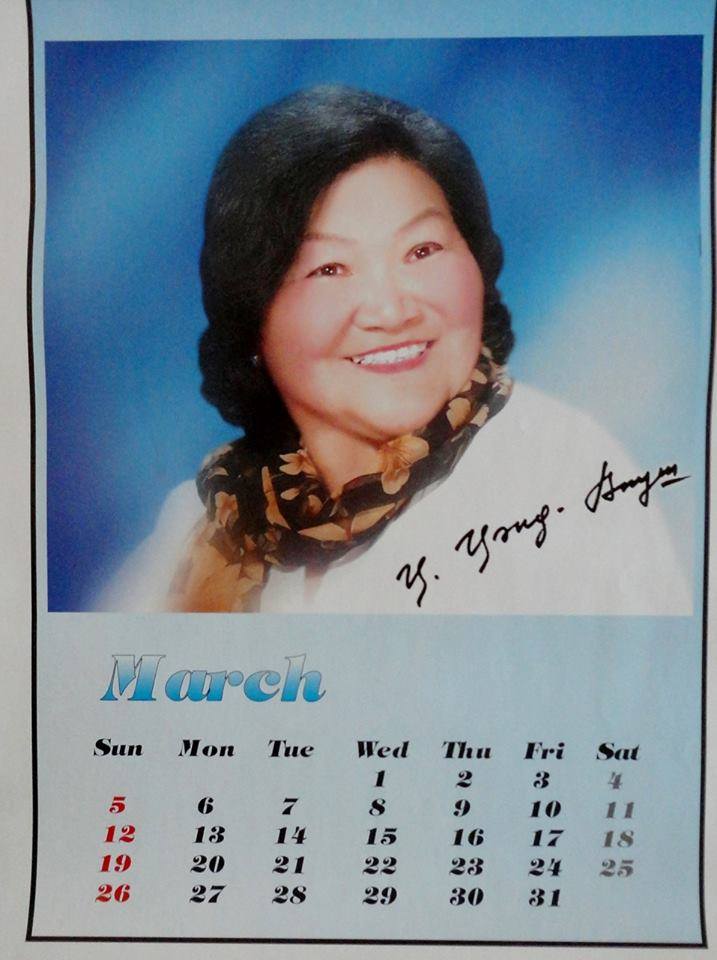 March
Sun Mon Tue Wed Thu Fri Sat
1 2 3 4
5 6 7 8 9 10 11
12 13 14 15 16 17 18
19 20 21 22 23 24 25
26 27 28 29 30 31